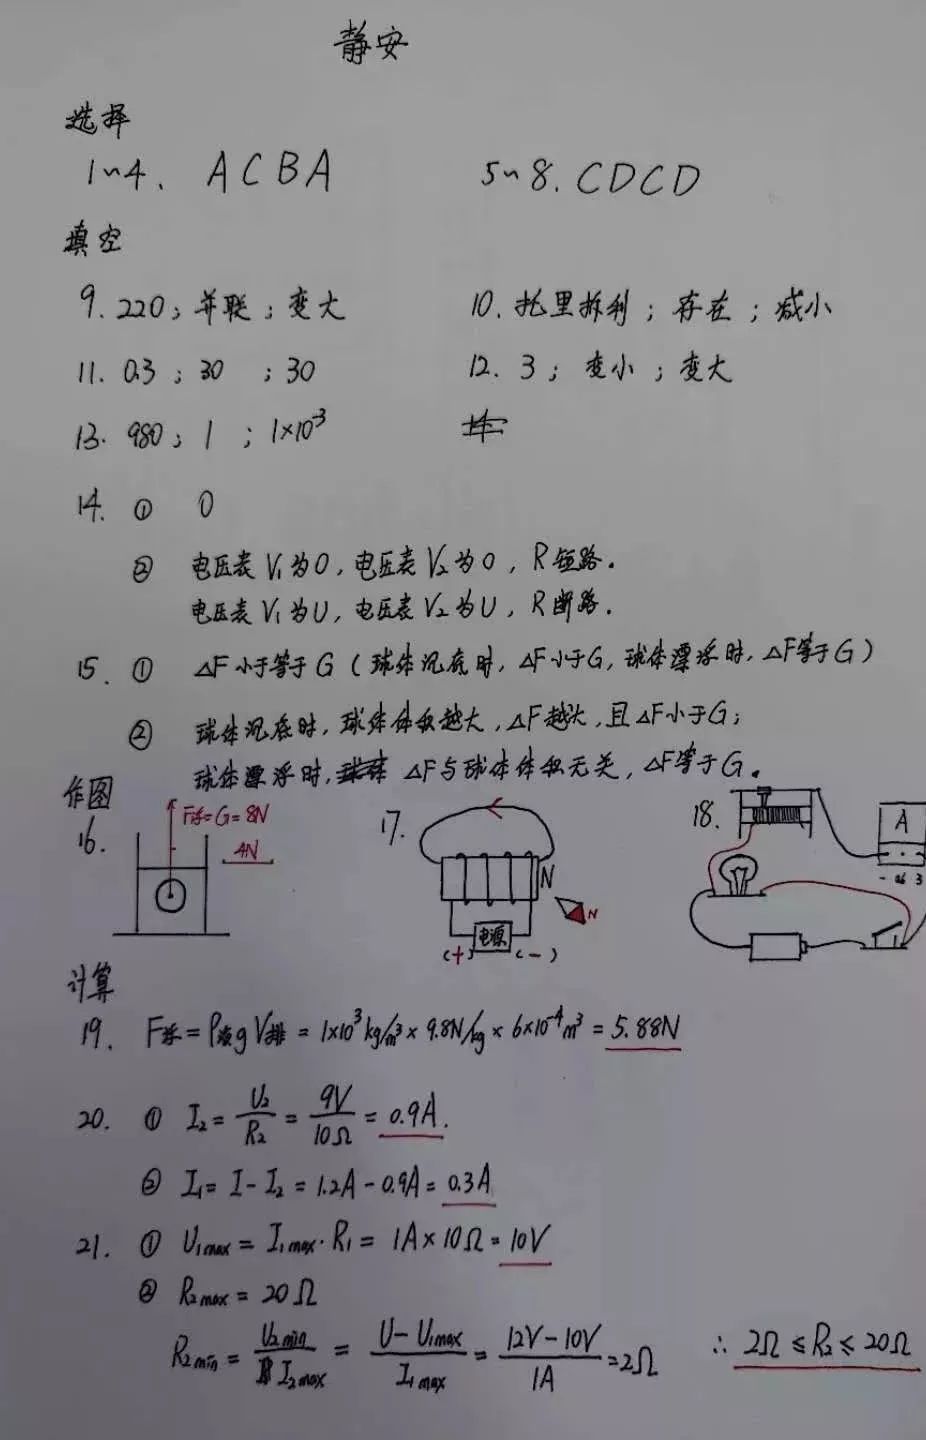 静安
选择
1~4、ACBA 5~8. CDCD
填空
9. 220；并联；变大 10. 托里拆利；存在；减小
11. 0.3；30；30 12. 3；变小；变大
13. 980；1；1×10⁻³
14. ① 0
② 电压表V₁为0，电压表V₂为0，R短路。
电压表V₁为U，电压表V₂为U，R断路.
15. ① △F小于等于G（球体沉底时，△F小于G，球体漂浮时，△F等于G）
② 球体沉底时，球体体积越大，△F越大，且△F小于G；
球体漂浮时，△F与球体体积无关，△F等于G。
作图
16. F浮=G=8N 4N
17. N N 电源 (+) (-)
18. A - 0.6 3
计算
19. F浮=ρ液gV排=1×10³kg/m³×9.8N/kg×6×10⁻⁴m³=5.88N
20. ① I₂=U₂/R₂=9V/10Ω=0.9A.
② I₁=I-I₂=1.2A-0.9A=0.3A
21. ① U₁max=I₁max·R₁=1A×10Ω=10V
② R₂max=20Ω
R₂min=U₂min/I₂max=(U-U₁max)/I₁max=(12V-10V)/1A=2Ω ∴ 2Ω≤R₂≤20Ω